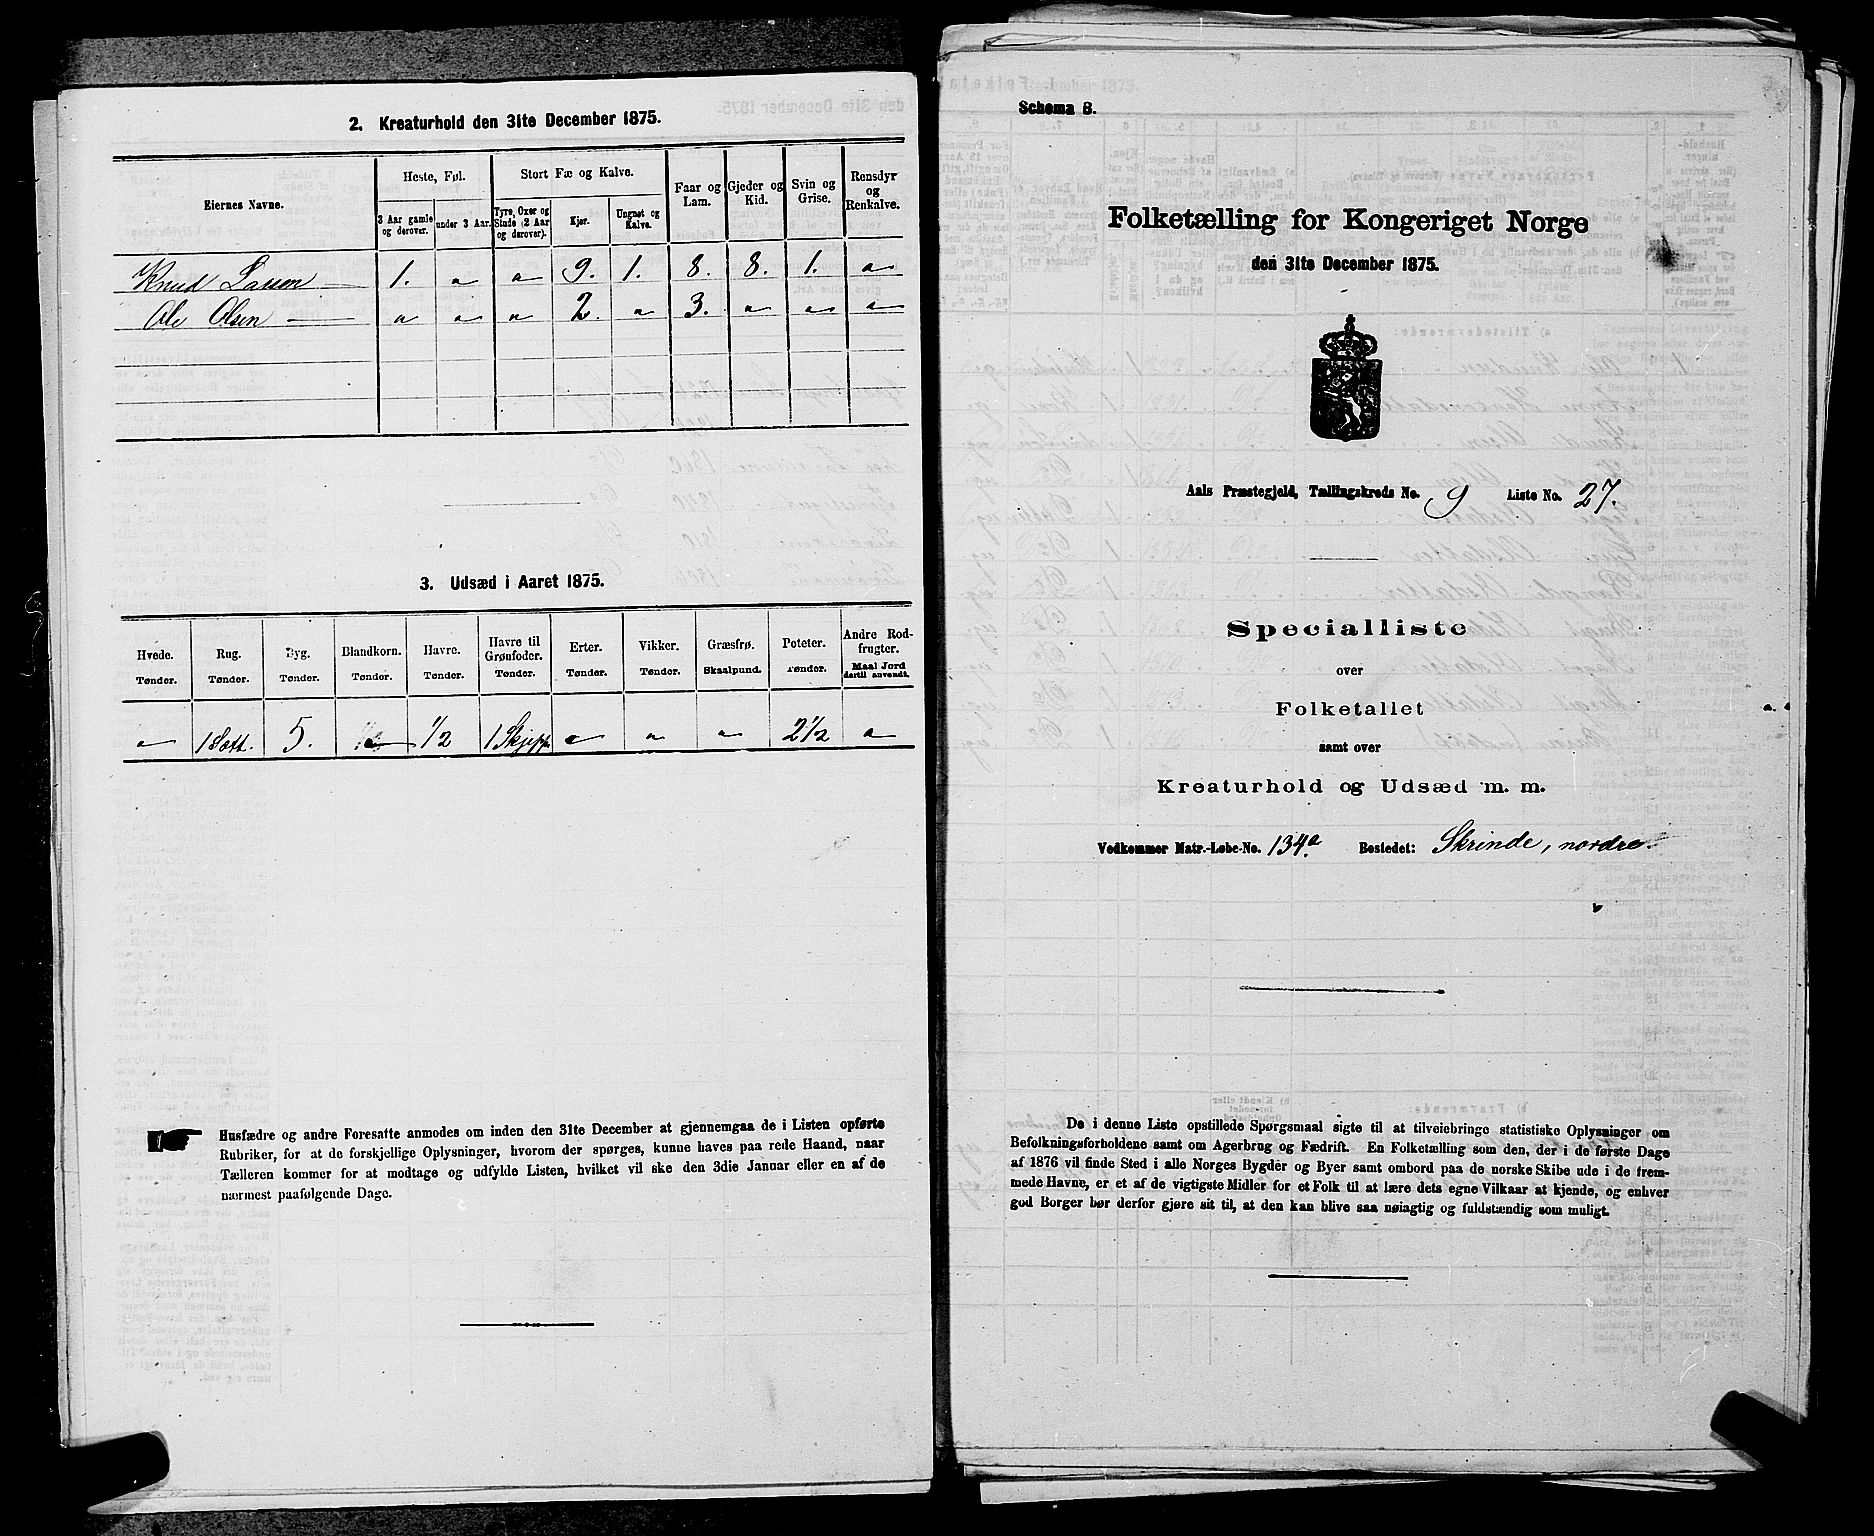 2. Kreaturhold den 31te December 1875.
Eiernes Navne.
Heste, Føl.
Stort Fæ og Kalve.
Faar og Lam.
Gjeder og Kid.
Svin og Grise.
Rensdyr og Renkalve.
3 Aar gamle og derover.
under 3 Aar.
Tyre, Oxer og Stude (2 Aar og derover).
Kjør.
Ungnøt og Kalve.
Knud Larsen 1. " " 9. 1. 8. 8. 1. "
Ole Olsen " " " 2. " 3. " " "
3. Udsæd i Aaret 1875.
Hvede. Rug. Byg. Blandkorn. Havre. Havre til Grønfoder. Erter. Vikker. Græsfrø. Poteter. Andre Rodfrugter.
Tønder. Tønder. Tønder. Tønder. Tønder. Tønder. Tønder. Tønder. Skaalpund. Tønder. Maal Jord dertil anvendt.
" 5. " 1/2 1 Skjepp " " " 2 1/2 "
Husfædre og andre Foresatte anmodes om inden den 31te December at gjennemgaa de i Listen opførte
Rubriker, for at de forskjellige Oplysninger, hvorom der spørges, kunne haves paa rede Haand, naar
Tælleren kommer for at modtage og udfylde Listen, hvilket vil ske den 3die Januar eller en af de
nærmest paafølgende Dage.
Schema B.
Folketælling for Kongeriget Norge
den 31te December 1875.
Aals Præstegjeld, Tællingskreds No. 9 Liste No. 27.
Specialliste
over
Folketallet
samt over
Kreaturhold og Udsæd m. m.
Vedkommer Matr.-Løbe-No. 134a Bostedet: Skrinde, nordre.
De i denne Liste opstillede Spørgsmaal sigte til at tilveiebringe statistiske Oplysninger om
Befolkningsforholdene samt om Agerbrug og Fædrift. En Folketælling som den, der i de første Dage
af 1876 vil finde Sted i alle Norges Bygder og Byer samt ombord paa de norske Skibe ude i de frem-
mede Havne, er et af de vigtigste Midler for et Folk til at lære dets egne Vilkaar at kjende, og enhver
god Borger bør derfor gjøre sit til, at den kan blive saa nøiagtig og fuldstændig som muligt.